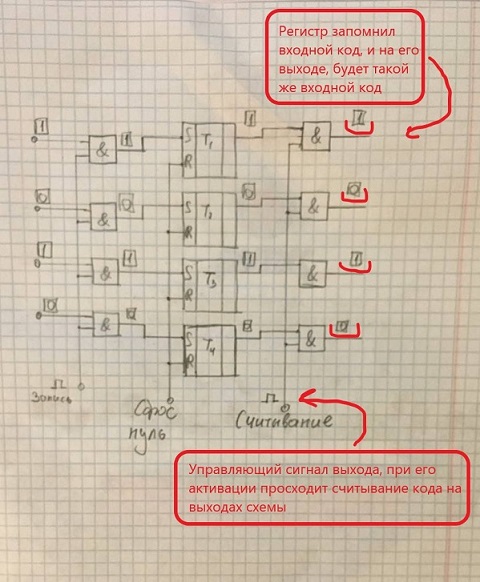 Регистр запомнил
входной код, и на его
выходе, будет такой
же входной код
1 1 1 1
& S T1 &
R
0 0 0 0
& S T2 &
R
1 1 1 1
& S T3 &
R
0 0 0 0
& S T4 &
R
Запись
Сброс
нуль
Считывание
Управляющий сигнал выхода, при его
активации просходит считывание кода на
выходах схемы